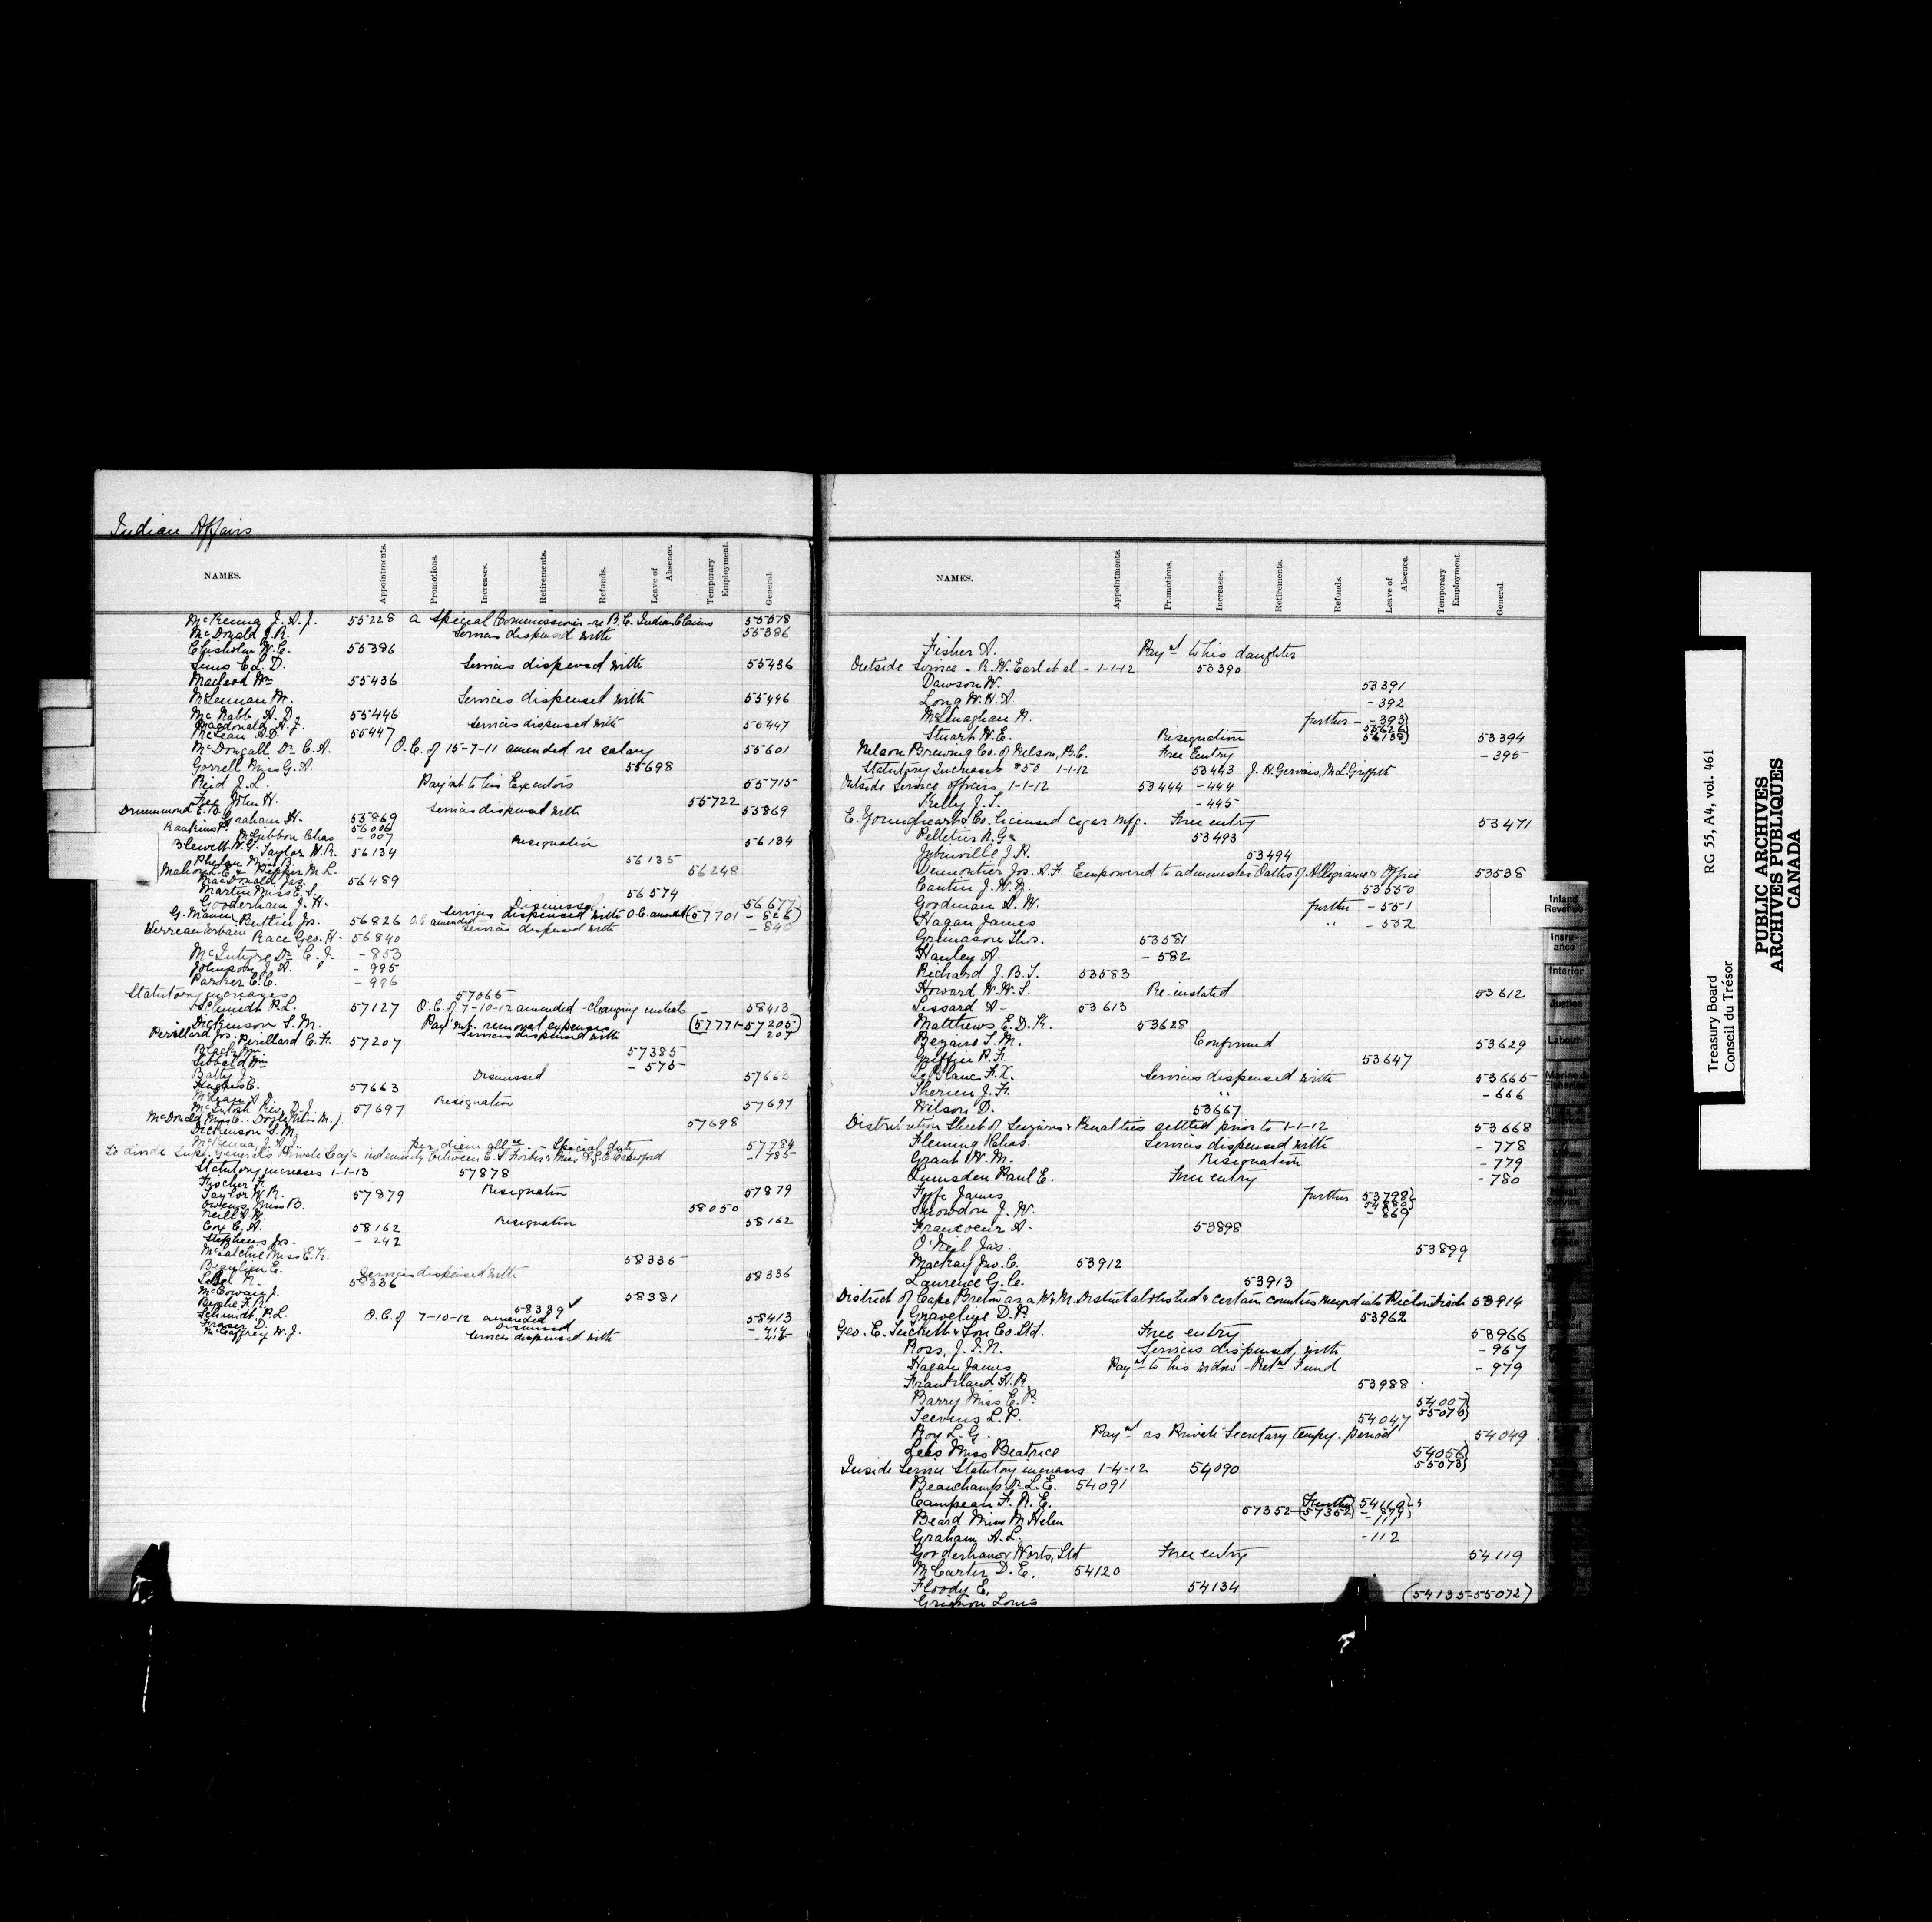 Indian Affairs
NAMES. Appointments. Promotions. Increases. Retirements. Refunds. Leave of Absence. Temporary Employment. General.
McKenna J. A. J. 55228 a Special Commissioner re B.C. Indian Claims 55578
McDonald J. R. Services dispensed with 55386
Chisholm W. C. 55386
Sims C. L. D. Services dispensed with 55436
Macleod Wm 55436
McLennan M. Services dispensed with 55446
McNabb A. D. 55446
Macdonald A. J. Services dispensed with 55447
McLean A. D. 55447
McDougall Dr C. A. O.C. of 15-7-11 amended re salary 55601
Gorrell Miss G. A. 55698
Reid J. L. Paym't to his Executors 55715
Fee John H. 55722
Drummond E. B. Graham H. 55869 Services dispensed with 55869
Rankins P. 56006
McGibbon Chas - 007
Blewett W. G. Taylor W. R. 56134 Resignation 56134
Phelan Miss B. 56135
Mahony C. & Pepper M. L. 56248
MacDonald Jas. 56489
Martin Miss E. S. 56574
Gooderham J. H. Dismissal 56677
G. Mann Butlin Jos. 56826 O.C. amended Services dispensed with O.C. amended (57701 - 826)
Race Geo. H. 56840 Services dispensed with - 840
McIntyre Dr C. J. - 853
Johnson J. A. - 995
Parker C. C. - 996
Statutory increases 57065
Schmidt P. L. 57127 O.C. of 7-10-12 amended - changing initials 58413
Dickinson S. M. Paym't removal expenses (57771-57205)
Perillard Jos. Perillard C. H. 57207 Services dispensed with - 207
Black Wm. 57385
Sibbald Wm - 575
Batty J. Dismissed 57663
Hughes C. 57663
McLean A. D. Resignation 57697
McIntosh Rev. D. J. 57697
McDonald Miss C. Doyle Miss M. J. 57698
Dickenson S. M.
McKenna J. A. J. per diem allce - Special duty 57784
To divide Supt. General's Private Secy's indemnity between E. S. Forbes & Miss A. G. E. Crawford - 785
Statutory increases 1-1-13 57878
Fischer F. Resignation 57879
Taylor W. R. 57879
Owens Miss B. 58050
Neill A. W. Resignation 58162
Cox C. A. 58162
Stephens Jos. - 242
McLatchie Miss E. K. 58335
Beaulieu E. Services dispensed with 58336
Lebel N. 58336
McCowan J. 58381
Byshe F. R. 58389
Schmidt P. L. O.C. of 7-10-12 amended 58413
Fraser D. Dismissed - 414
McCaffrey W. J. Services dispensed with - 415
NAMES. Appointments. Promotions. Increases. Retirements. Refunds. Leave of Absence. Temporary Employment. General.
Fisher A. Paymt to his daughter
Outside Service - R. W. Earl et al - 1-1-12 53390
Dawson W. 53391
Long W. H. A. - 392
McLenaghan N. further - - 393)
55626
56138)
Stuart W. E. Resignation 53394
Nelson Brewing Co. of Nelson, B.C. Free Entry - 395
Statutory Increases $50 1-1-12 53443 J. H. Gervais, M. L. Griffith
Outside Service Officers, 1-1-12 53444 - 444
Kelly J. T. - 445
E. Youngheart & Co. licensed cigar mfg. Free entry 53471
Pelletier N. G. 53493
Jubinville J. R. 53494
Dumontier Jos. A. F. Empowered to administer Oaths of Allegiance & Office 53538
Cantin J. W. J. 53550
Goodman A. W. further - 551
Hagan James " - 552
Grimason Thos. 53581
Hanley A. - 582
Richard J. B. T. 53583
Howard W. W. S. Re-instated 53612
Lessard A. 53613
Matthews E. D. K. 53628
Bezaire T. M. Confirmed 53629
Griffin R. F. 53647
LeBlanc F. X. Services dispensed with 53665
Therien J. H. " - 666
Wilson D. 53667
Distribution Sheet of Seizures & Penalties settled prior to 1-1-12 53668
Fleming Chas. Services dispensed with - 778
Grant W. M. Resignation - 779
Lumsden Paul E. Free entry - 780
Fyfe James further 53798)
54880)
Snowdon J. W. - 869
Francoeur A. 53898
O'Neil Jas. 53899
Mackay Jno. C. 53912
Laurence G. C. 53913
District of Cape Breton as a W & M. District abolished & certain counties merged into Pictou Distr. 53914
Graveline D. P. 53962
Geo. E. Tuckett & Son Co. Ltd. Free entry 53966
Ross, J. J. N. Services dispensed with - 967
Hagan James Paymt to his widow - Ret. Fund - 979
Frankland H. R. 53988
Barry Miss E. P. 54007)
55076)
Teevens L. P. 54047
Roy L. G. Paymt as Private Secretary tempy. period 54049
Lees Miss Beatrice 54056)
55073)
Inside Service Statutory increases 1-4-12 54090
Beauchamp D. L. E. 54091
Campeau F. R. E. Further 54110)
57352 - (57352)
Beard Miss M Helen - 111
Graham A. L. - 112
Gooderham & Worts, Ltd Free entry 54119
McCarter D. E. 54120
Floody E. 54134
Grignon Louis (54135-55072)
Inland Revenue
Insurance
Interior
Justice
Labour
Marine & Fisheries
Mines
Naval Service
Post Office
Treasury Board RG 55, A4, vol. 461
Conseil du Trésor
PUBLIC ARCHIVES
ARCHIVES PUBLIQUES
CANADA